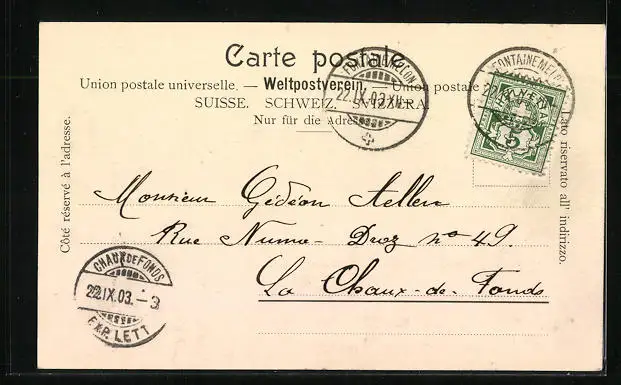 Carte postale
Union postale universelle. — Weltpostverein. — Union postale
SUISSE. SCHWEIZ. SVIZZERA.
Nur für die Adresse
Côté réservé à l'adresse.
Lato riservato all' indirizzo.
22.IX.03.XII
HELVETIA
5
Monsieur Gédéon
Rue Numa-Droz nº 49.
La Chaux-de-Fonds
CHAUX DE FONDS
22.IX.03.–3
EXP. LETT